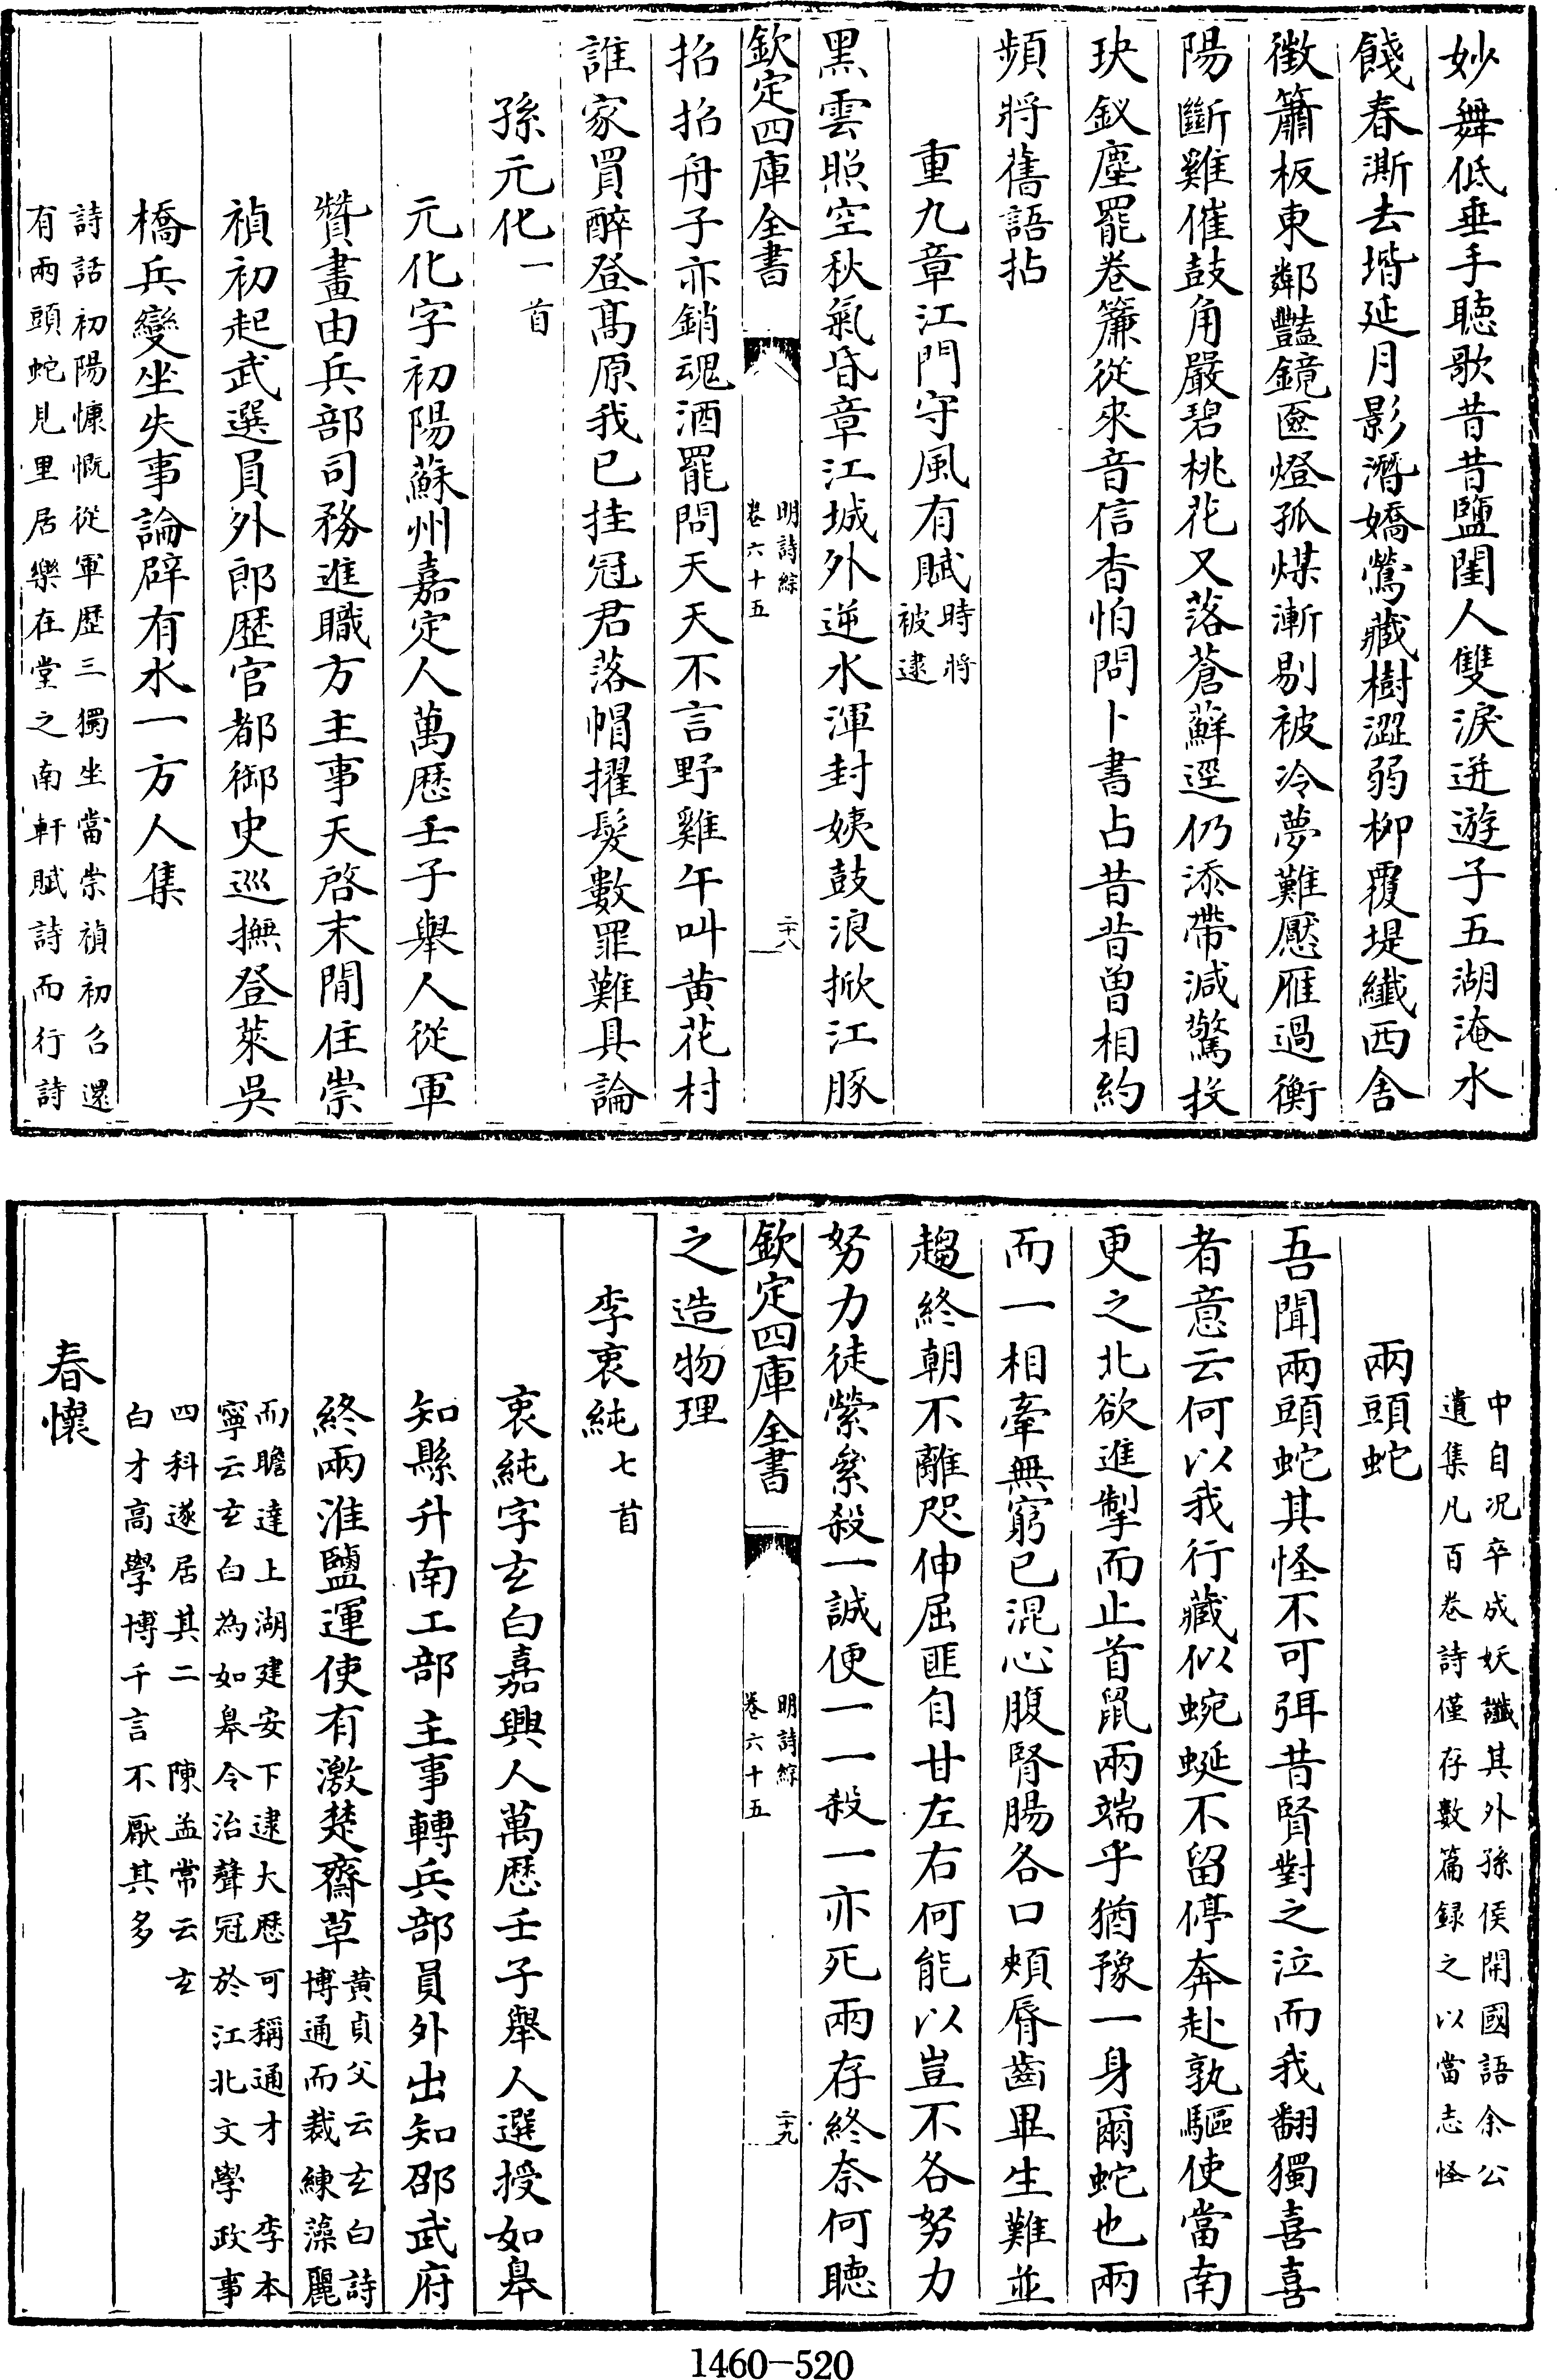 妙舞低垂手聽歌昔昔鹽閨人雙淚迸遊子五湖淹水
餞春澌去堦延月影潛嬌鶯藏樹澀弱柳覆堤纖西舍
徵簫板東鄰豔鏡匳燈孤煤漸剔被冷夢難壓雁過衡
陽斷雞催鼓角嚴碧桃花又落蒼蘚逕仍添帶減驚投
玦釵塵罷卷簾從來音信杳怕問卜書占昔昔曽相約
頻將舊語拈
重九章江門守風有賦時將被逮
黑雲照空秋氣昏章江城外逆水渾封姨鼓浪掀江豚
欽定四庫全書
明詩綜
卷六十五
二十八
招招舟子亦銷魂酒罷問天天不言野雞午叫黄花村
誰家買醉登髙原我已挂冠君落帽擢髮數罪難具論
孫元化一首
元化字初陽蘇州嘉定人萬歴壬子舉人從軍
贊畫由兵部司務進職方主事天啓末閒住崇
禎初起武選員外郎歴官都御史巡撫登萊吳
橋兵變坐失事論辟有水一方人集
詩話初陽慷慨從軍歴三獨坐當崇禎初召還
有兩頭蛇見里居樂在堂之南軒賦詩而行詩
中自况卒成妖讖其外孫侯開國語余公
遺集凡百卷詩僅存數篇録之以當志怪
兩頭蛇
吾聞兩頭蛇其怪不可弭昔賢對之泣而我翻獨喜喜
者意云何以我行藏似蜿蜒不留停奔赴孰驅使當南
更之北欲進掣而止首鼠兩端乎猶豫一身爾蛇也兩
而一相牽無窮已混心腹腎腸各口頰脣齒畢生難並
趨終朝不離咫伸屈匪自甘左右何能以豈不各努力
努力徒縈紊殺一誠便一一殺一亦死兩存終奈何聽
欽定四庫全書
明詩綜
卷六十五
二十九
之造物理
李衷純七首
衷純字玄白嘉興人萬歴壬子舉人選授如臯
知縣升南工部主事轉兵部員外出知邵武府
終兩淮鹽運使有激楚齋草黄貞父云玄白詩博通而裁練藻麗
而瞻達上湖建安下逮大歴可稱通才　李本
寧云玄白為如臯令治聲冠於江北文學政事
四科遂居其二　陳孟常云玄
白才高學博千言不厭其多
春懷
1460-520